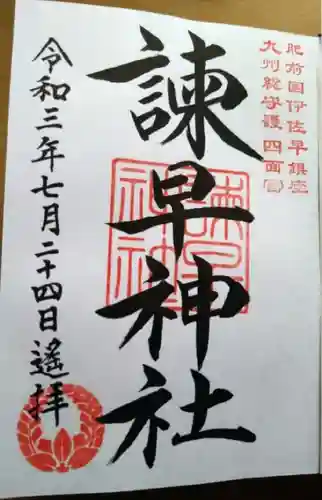 肥前国伊佐早鎮座
九州総守護 四面宮
諫早神社
諫早神社
令和三年七月二十四日遙拝